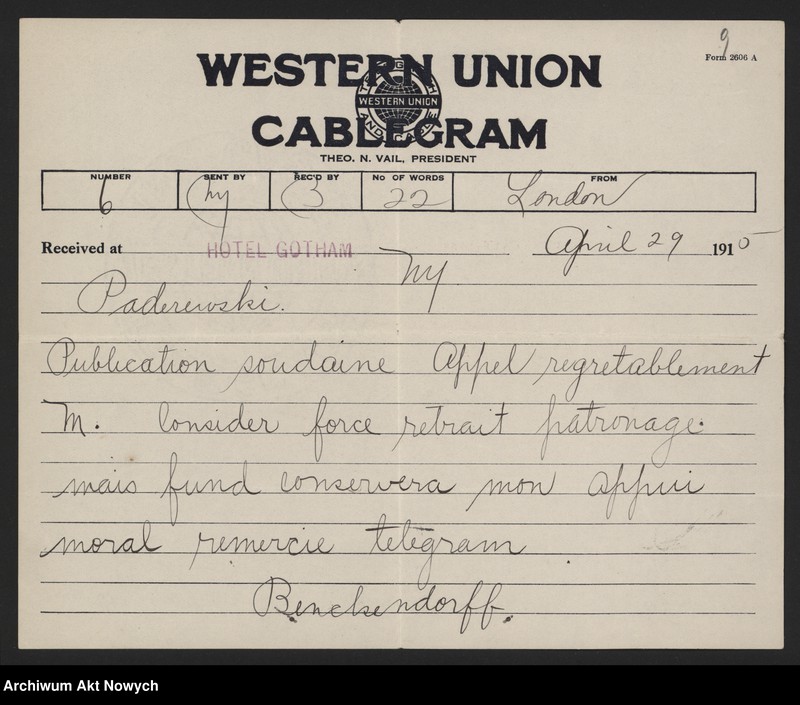 9
Form 2606 A
WESTERN UNION
WESTERN UNION
CABLEGRAM
THEO. N. VAIL, PRESIDENT
NUMBER SENT BY REC'D BY No OF WORDS FROM
6 22 London
Received at HOTEL GOTHAM NY April 29 1915
Paderewski.
Publication soudaine Appel regretablement
M. Consider force retrait patronage.
mais fund conservera mon appui
moral remercie telegram
Benckendorff.
Archiwum Akt Nowych